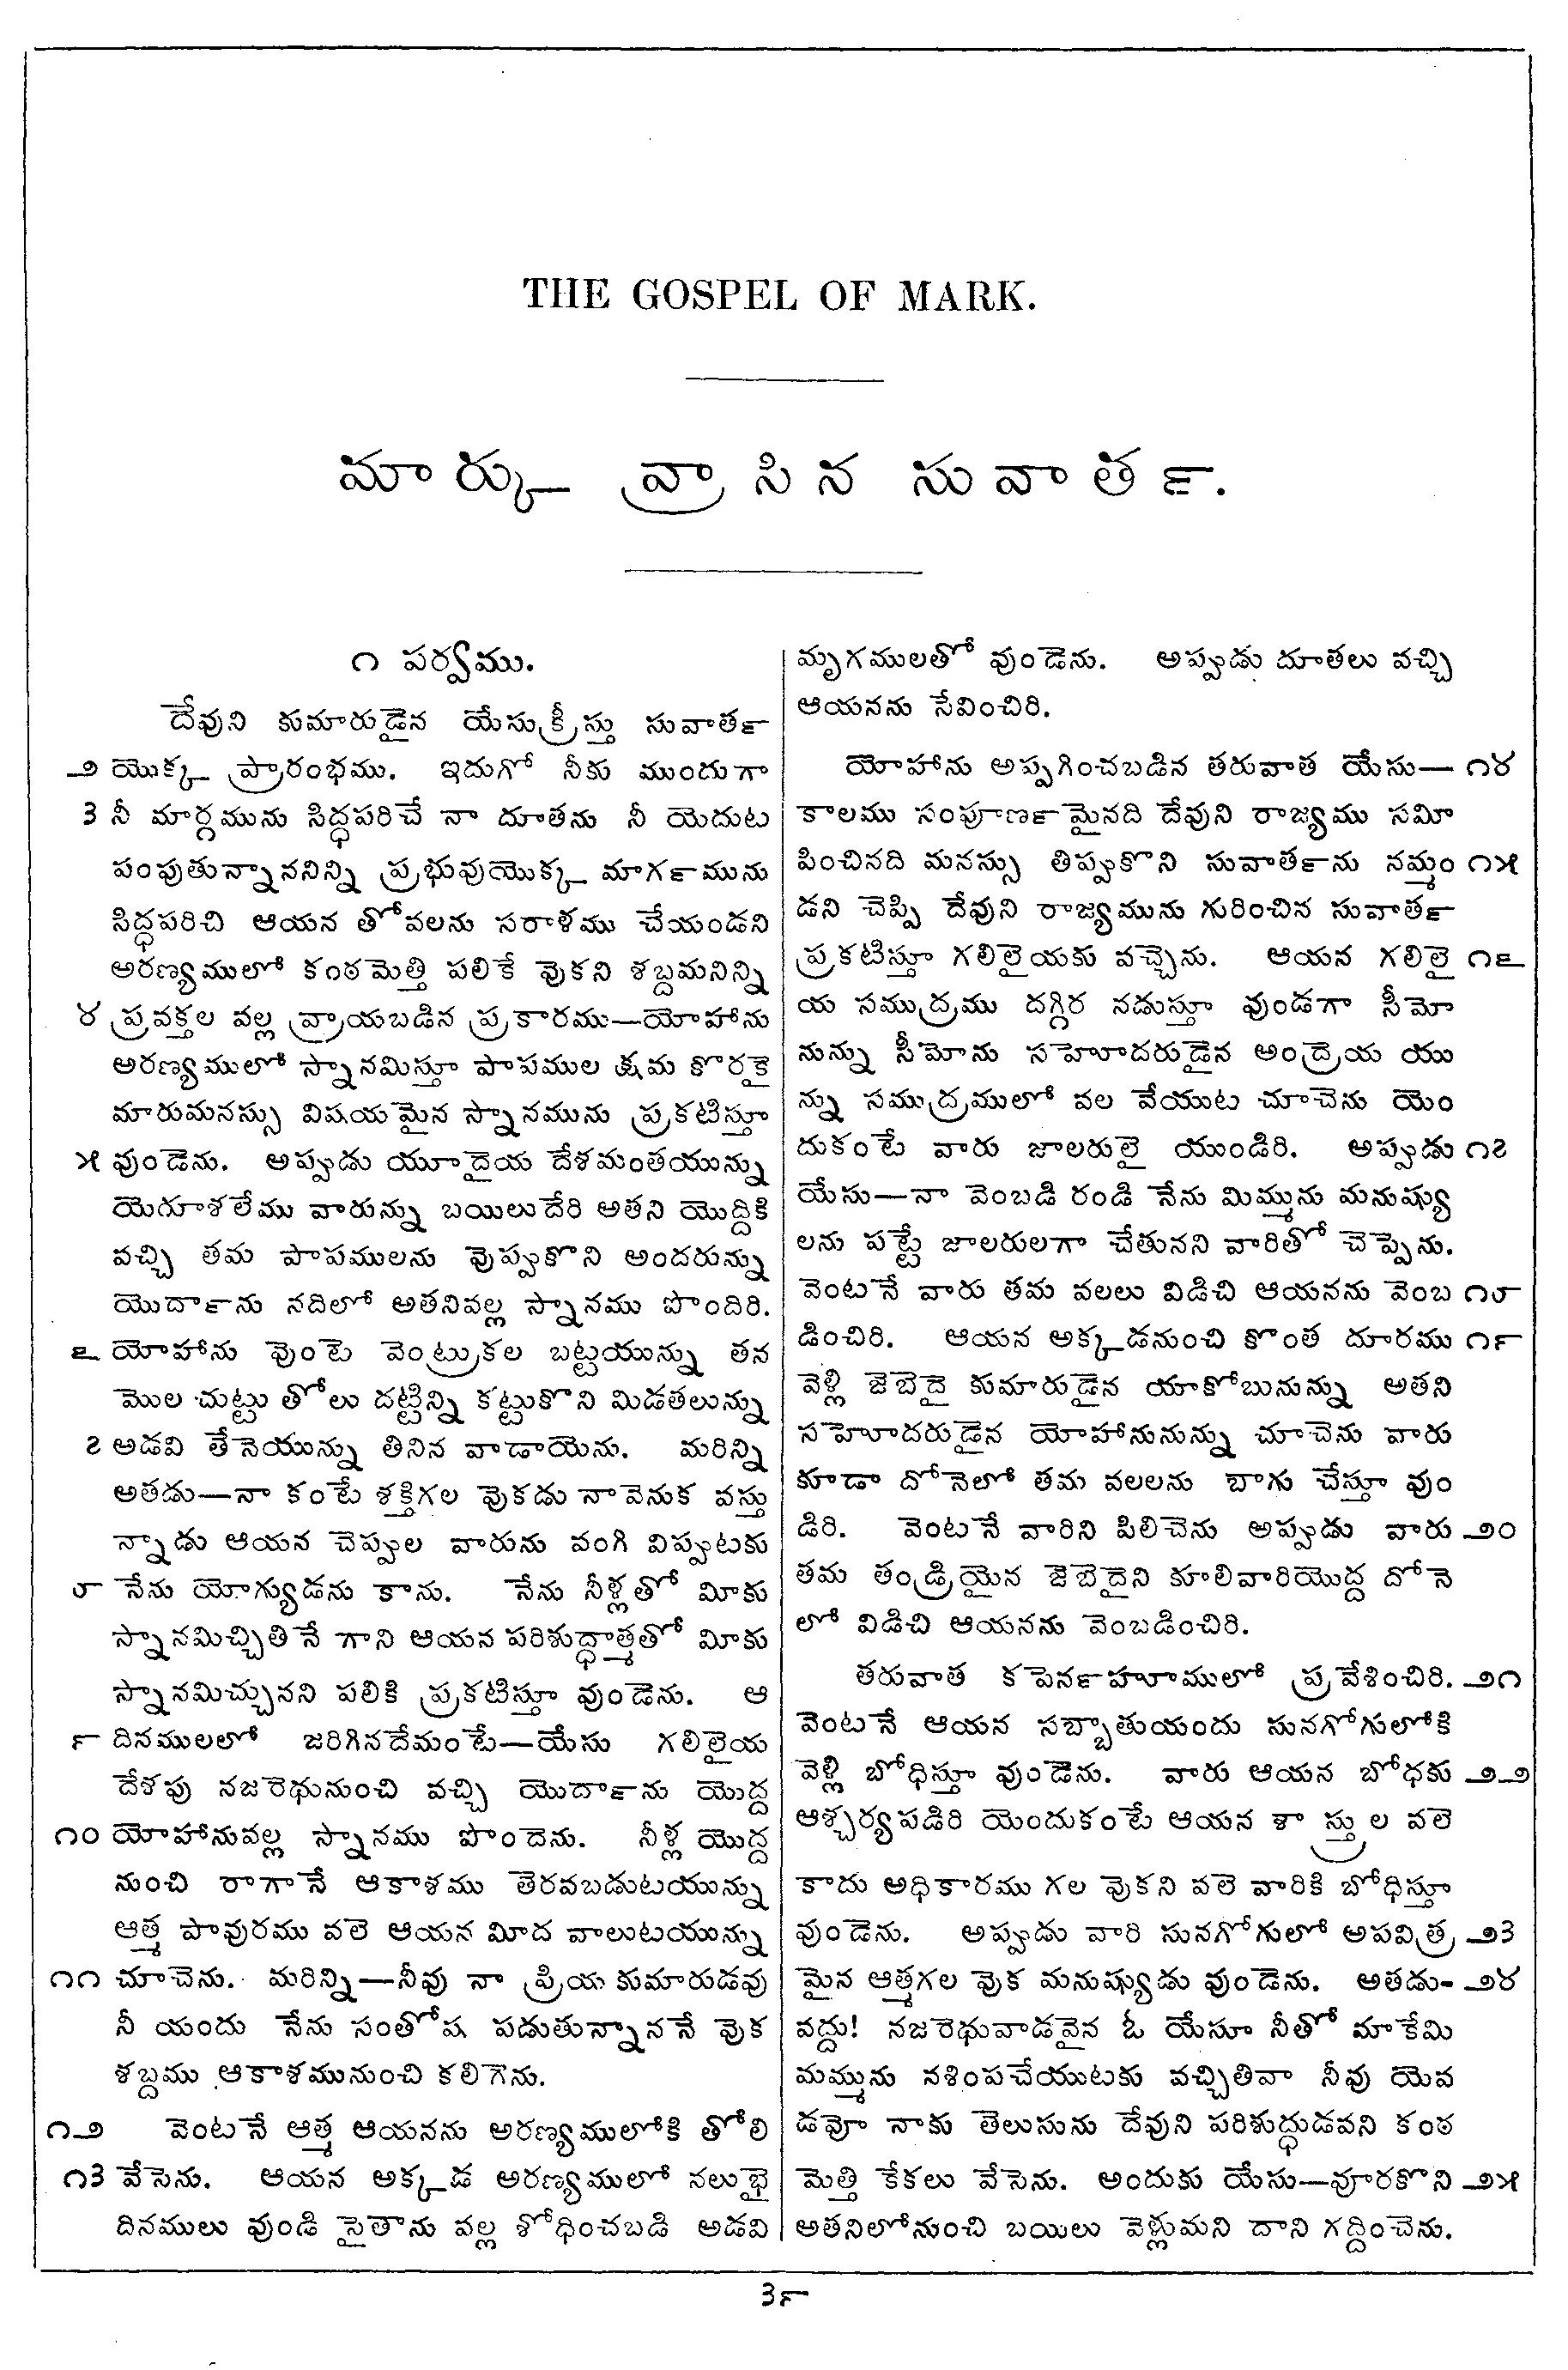 THE GOSPEL OF MARK.
మార్కు వ్రాసిన సువాత౯.
౧ పర్వము.
దేవుని కుమారుడైన యేసుక్రీస్తు సువాత౯
౨ యొక్క ప్రారంభము. ఇదుగో నీకు ముందుగా
౩ నీ మార్గమును సిద్ధపరిచే నా దూతను నీ యెదుట
పంపుతున్నాననిన్ని ప్రభువుయొక్క మాగ౯మును
సిద్ధపరిచి ఆయన తోవలను సరాళము చేయండని
అరణ్యములో కంఠమెత్తి పలికే వుకని శబ్దమనిన్ని
౪ ప్రవక్తల వల్ల వ్రాయబడిన ప్రకారము—యోహాను
అరణ్యములో స్నానమిస్తూ పాపముల క్షమ కొరకై
మారుమనస్సు విషయమైన స్నానమును ప్రకటిస్తూ
౫ వుండెను. అప్పుడు యూదైయ దేశమంతయున్ను
యెరూశలేము వారున్ను బయిలుదేరి అతని యొద్దికి
వచ్చి తమ పాపములను వొప్పుకొని అందరున్ను
యొదా౯ను నదిలో అతనివల్ల స్నానము పొందిరి.
౬ యోహాను వుంటె వెంట్రుకల బట్టయున్ను తన
మొల చుట్టు తోలు దట్టిన్ని కట్టుకొని మిడతలున్ను
౭ అడవి తేనెయున్ను తినిన వాడాయెను. మరిన్ని
అతడు—నా కంటే శక్తిగల వుకడు నా వెనుక వస్తు
న్నాడు ఆయన చెప్పుల వారును వంగి విప్పుటకు
౮ నేను యోగ్యుడను కాను. నేను నీళ్లతో మీకు
స్నానమిచ్చితినే గాని ఆయన పరిశుద్ధాత్మతో మీకు
స్నానమిచ్చునని పలికి ప్రకటిస్తూ వుండెను. ఆ
౯ దినములలో జరిగినదేమంటే—యేసు గలిలైయ
దేశపు నజరెథునుంచి వచ్చి యొదా౯ను యొద్ద
౧౦ యోహానువల్ల స్నానము పొందెను. నీళ్ల యొద్ద
నుంచి రాగానే ఆకాశము తెరవబడుటయున్ను
ఆత్మ పావురము వలె ఆయన మీద వాలుటయున్ను
౧౧ చూచెను. మరిన్ని—నీవు నా ప్రియ కుమారుడవు
నీ యందు నేను సంతోష పడుతున్నాననే వుక
శబ్దము ఆకాశమునుంచి కలిగెను.
౧౨ వెంటనే ఆత్మ ఆయనను అరణ్యములోకి తోలి
౧౩ వేసెను. ఆయన అక్కడ అరణ్యములో నలుభై
దినములు వుండి సైతాను వల్ల శోధించబడి అడవి
మృగములతో వుండెను. అప్పుడు దూతలు వచ్చి
ఆయనను సేవించిరి.
యోహాను అప్పగించబడిన తరువాత యేసు— ౧౪
కాలము సంపూణ౯మైనది దేవుని రాజ్యము సమీ
పించినది మనస్సు తిప్పుకొని సువాత౯ను నమ్మం ౧౫
డని చెప్పి దేవుని రాజ్యమును గురించిన సువాత౯
ప్రకటిస్తూ గలిలైయకు వచ్చెను. ఆయన గలిలై ౧౬
య సముద్రము దగ్గిర నడుస్తూ వుండగా సీమో
నున్ను సీమోను సహోదరుడైన అంద్రెయ యు
న్ను సముద్రములో వల వేయుట చూచెను యెం
దుకంటే వారు జాలరులై యుండిరి. అప్పుడు ౧౭
యేసు—నా వెంబడి రండి నేను మిమ్మును మనుష్యు
లను పట్టే జాలరులగా చేతునని వారితో చెప్పెను.
వెంటనే వారు తమ వలలు విడిచి ఆయనను వెంబ ౧౮
డించిరి. ఆయన అక్కడనుంచి కొంత దూరము ౧౯
వెళ్లి జెబెదై కుమారుడైన యాకోబునున్ను అతని
సహోదరుడైన యోహానునున్ను చూచెను వారు
కూడా దోనెలో తమ వలలను బాగు చేస్తూ వుం
డిరి. వెంటనే వారిని పిలిచెను అప్పుడు వారు ౨౦
తమ తండ్రియైన జెబెదైని కూలివారియొద్ద దోనె
లో విడిచి ఆయనను వెంబడించిరి.
తరువాత కపెన౯హూములో ప్రవేశించిరి. ౨౧
వెంటనే ఆయన సబ్బాతుయందు సునగోగులోకి
వెళ్లి బోధిస్తూ వుండెను. వారు ఆయన బోధకు ౨౨
ఆశ్చర్యపడిరి యెందుకంటే ఆయన శాస్త్రుల వలె
కాదు అధికారము గల వుకని వలె వారికి బోధిస్తూ
వుండెను. అప్పుడు వారి సునగోగులో అపవిత్ర ౨౩
మైన ఆత్మగల వుక మనుష్యుడు వుండెను. అతడు- ౨౪
వద్దు! నజరెథువాడవైన ఓ యేసూ నీతో మాకేమి
మమ్మును నశింపచేయుటకు వచ్చితివా నీవు యెవ
డవో నాకు తెలుసును దేవుని పరిశుద్ధుడవని కంఠ
మెత్తి కేకలు వేసెను. అందుకు యేసు—వూరకొని ౨౫
అతనిలోనుంచి బయిలు వెళ్లుమని దాని గద్దించెను.
౩౯